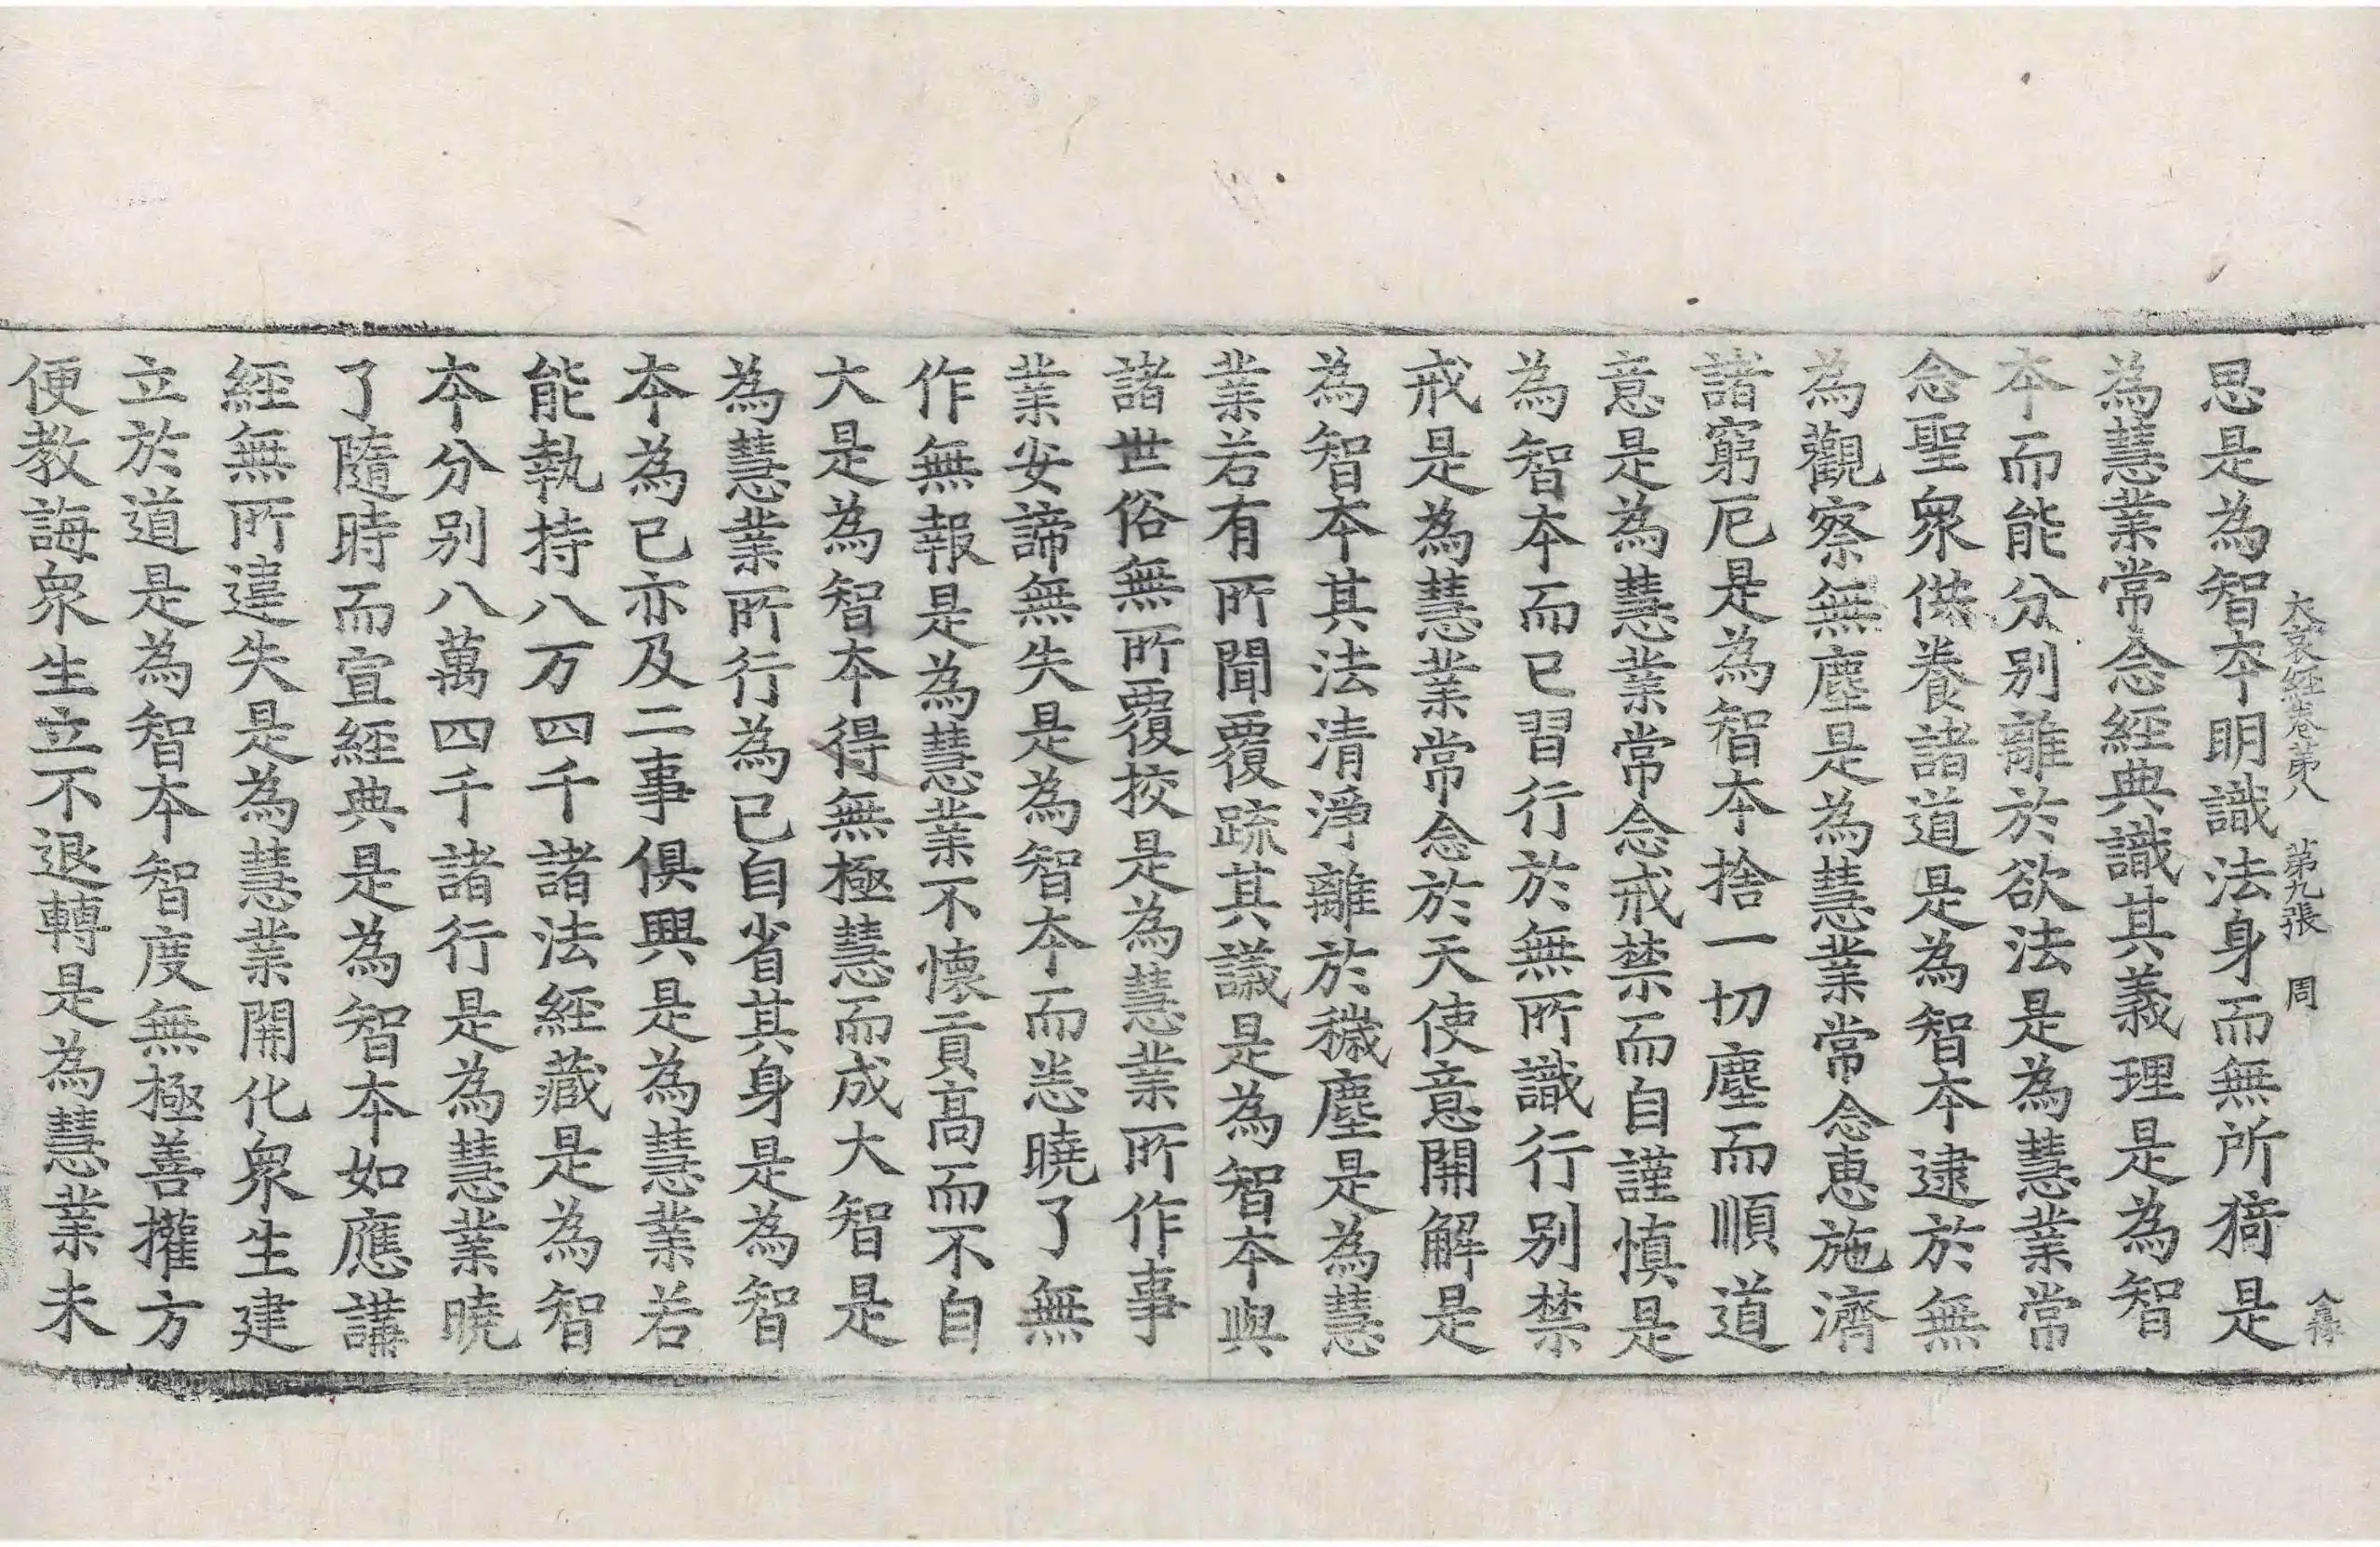 大哀經卷第八 第九張 周
恩是為智本明識法身而無所猗是
為慧業常念經典識其義理是為智
本而能分別離於欲法是為慧業常
念聖衆供養諸道是為智本逮於無
為觀察無塵是為慧業常念惠施濟
諸窮厄是為智本捨一切塵而順道
意是為慧業常念戒禁而自謹慎是
為智本而已習行於無所識行別禁
戒是為慧業常念於天使意開解是
為智本其法清淨離於穢塵是為慧
業若有所聞覆疏其議是為智本與
諸世俗無所覆挍是為慧業所作事
業安諦無失是為智本而恙曉了無
作無報是為慧業不懷貢高而不自
大是為智本得無極慧而成大智是
為慧業所行為已自省其身是為智
本為已亦及二事俱興是為慧業若
能執持八万四千諸法經藏是為智
本分別八萬四千諸行是為慧業曉
了隨時而宣經典是為智本如應講
經無所違失是為慧業開化衆生建
立於道是為智本智度無極善攉方
便教誨衆生立不退轉是為慧業未